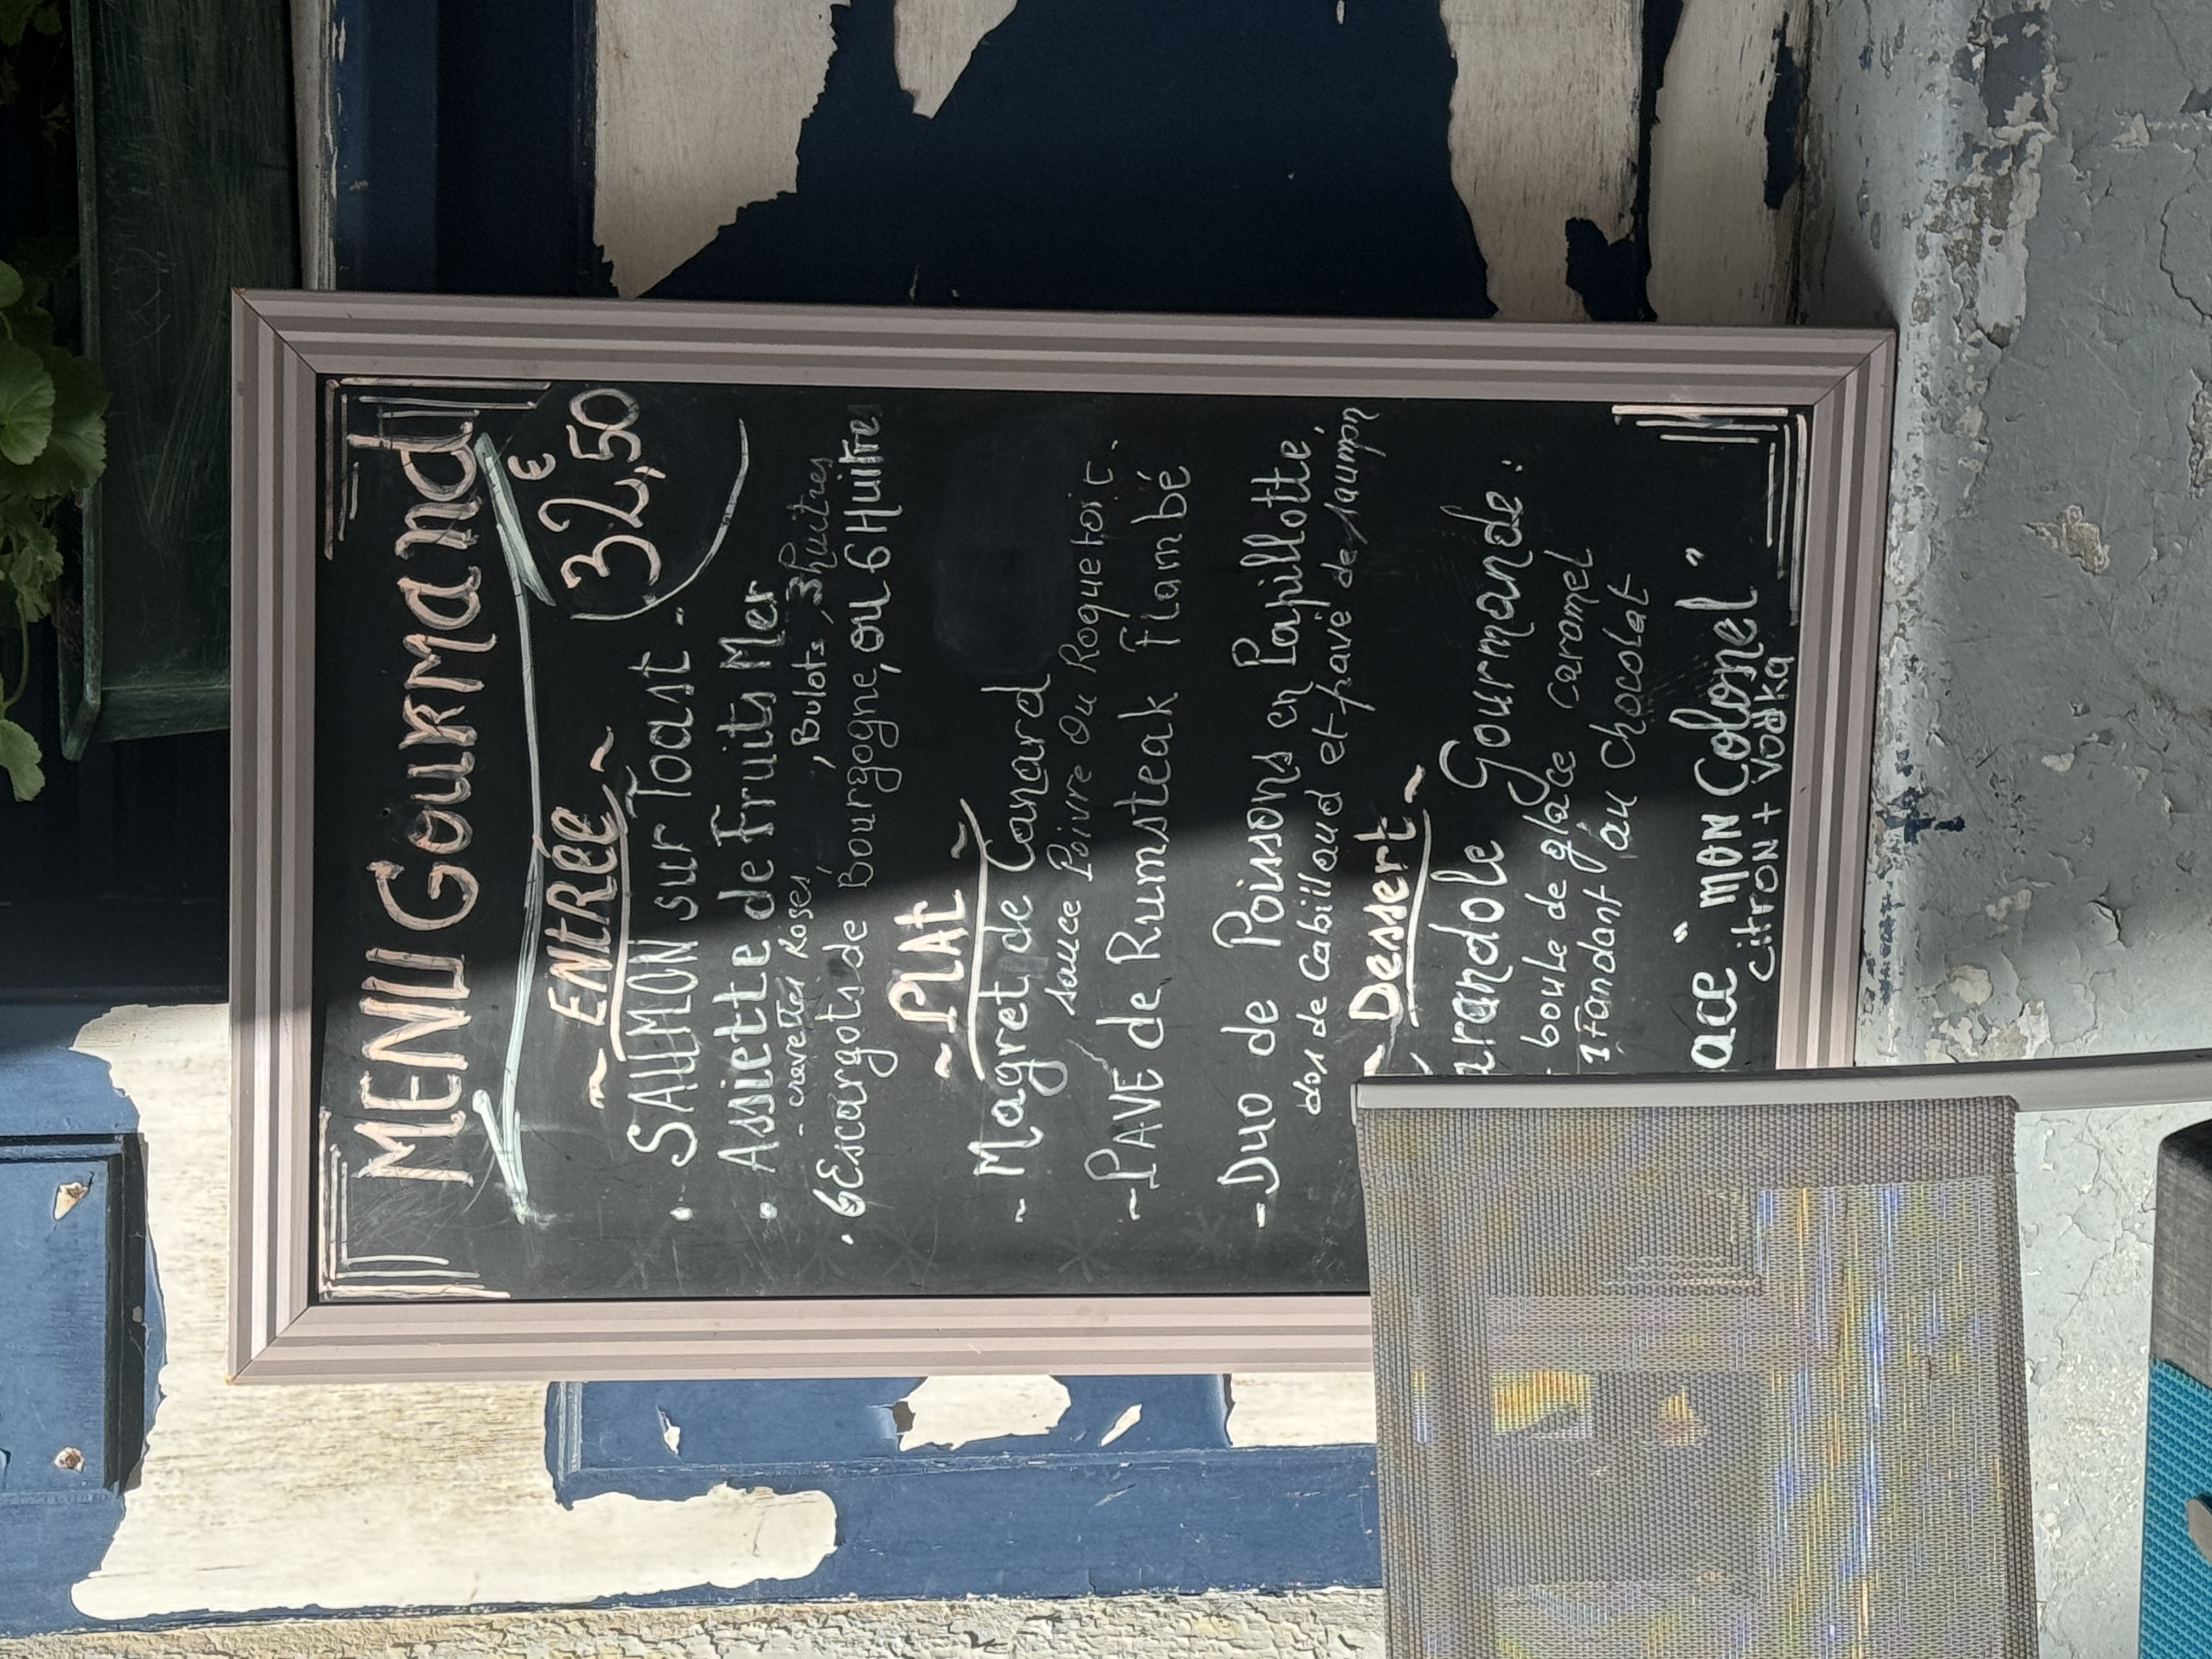 MENU Gourmand
€
32,50
~ ENtRÉE ~
• SAUMON sur Toast -
• Assiette de Fruits Mer
- crevettes Roses, Bulots, 3 huitres
• 6 Escargots de Bourgogne, ou 6 Huitres
~ PLAt ~
- Magret de Canard
sauce Poivre Ou Roquefort.
- PAVE de Rumsteak flambé
- Duo de Poissons en Papillotte,
dos de Cabillaud et pavé de saumon
~ Dessert ~
Gourmande :
boule de glace Caramel
1 Fondant au Chocolat
"mon Colonel"
CitRON + Vodka